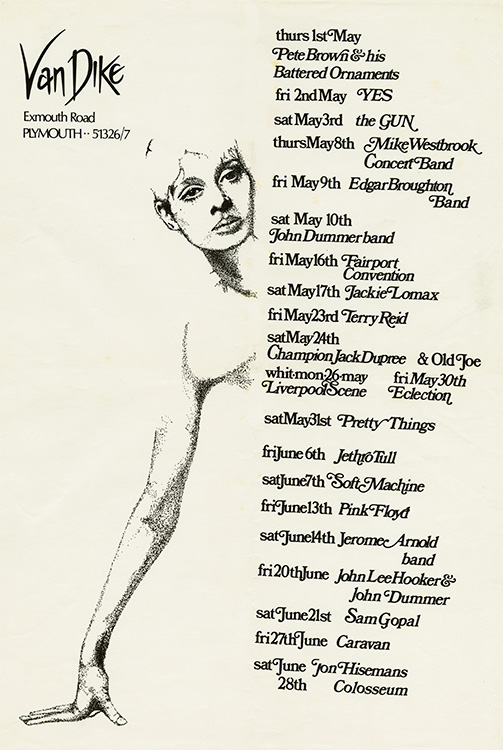 Van Dike
Exmouth Road
PLYMOUTH·· 51326/7
thurs 1st May
Pete Brown & his
Battered Ornaments
fri 2nd May YES
sat May 3rd the GUN
thurs May 8th Mike Westbrook
Concert Band
fri May 9th Edgar Broughton
Band
sat May 10th
John Dummer band
fri May 16th Fairport
Convention
sat May 17th Jackie Lomax
fri May 23rd Terry Reid
sat May 24th
Champion Jack Dupree & Old Joe
whit·mon·26·may fri May 30th
Liverpool Scene Eclection
sat May 31st Pretty Things
fri June 6th Jethro Tull
sat June 7th Soft Machine
fri June 13th Pink Floyd
sat June 14th Jerome Arnold
band
fri 20th June John Lee Hooker &
John Dummer
sat June 21st Sam Gopal
fri 27th June Caravan
sat June Jon Hisemans
28th Colosseum